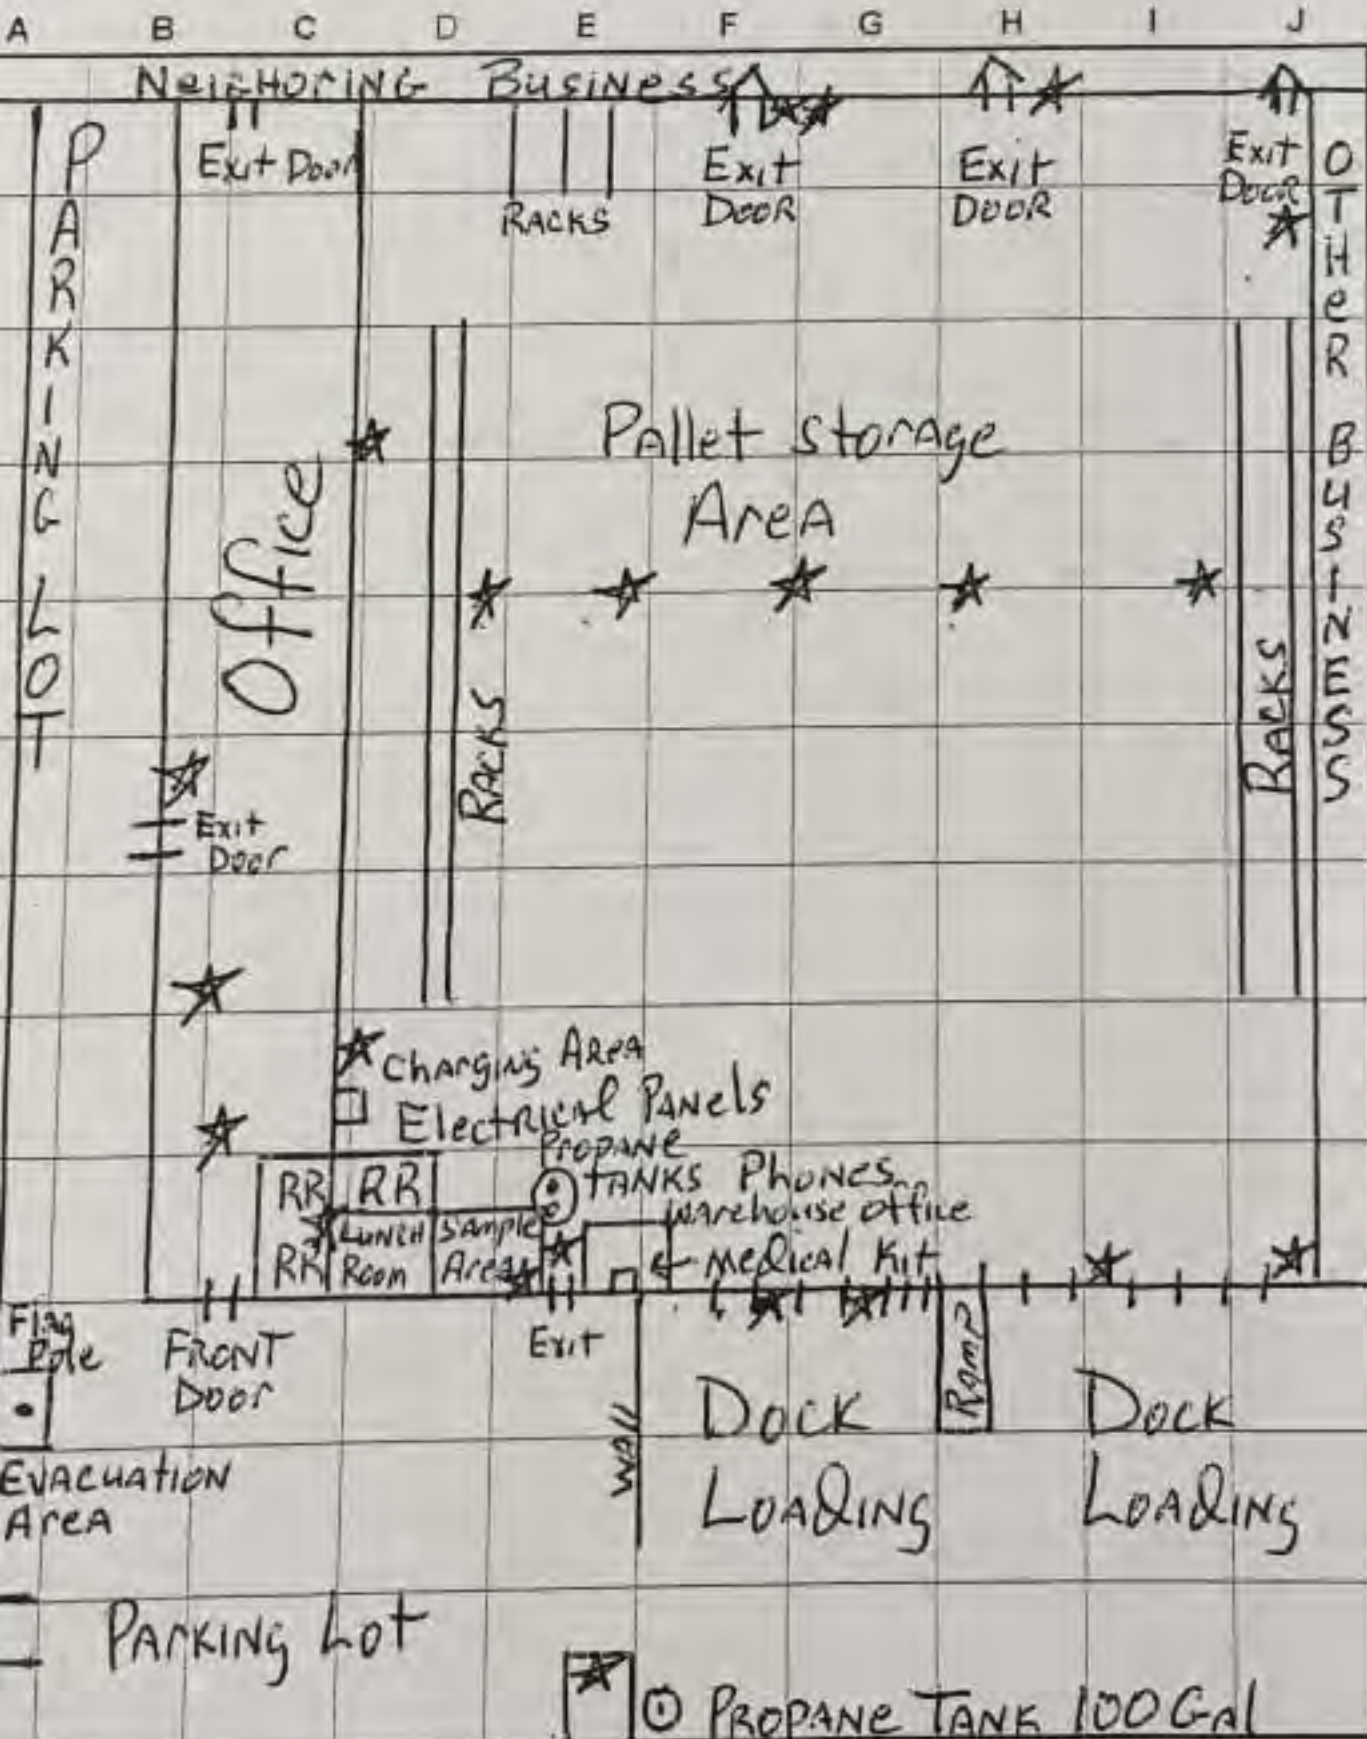 A B C D E F G H I J
NeiGHORING Business
PARKING LOT
Exit Door
RACKS
Exit
DOOR
Exit
DOOR
Exit
DOOR
OTHeR BUSINESS
Pallet Storage
Area
Office
RACKS
RACKS
Exit
Door
Charging Area
Electrical Panels
Propane
TANKS Phones
Warehouse office
Medical Kit
RR RR
RR
LUNCH
Room
Sample
Area
Flag
Pole
FRONT
Door
Exit
Wall
Dock
LOADING
Ramp
Dock
LOADING
EVACUATION
Area
PARKING Lot
PROPANE TANK 100 Gal